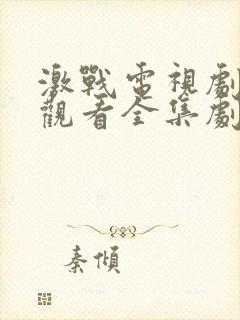 激戰電視劇
觀看全集劇
秦傾